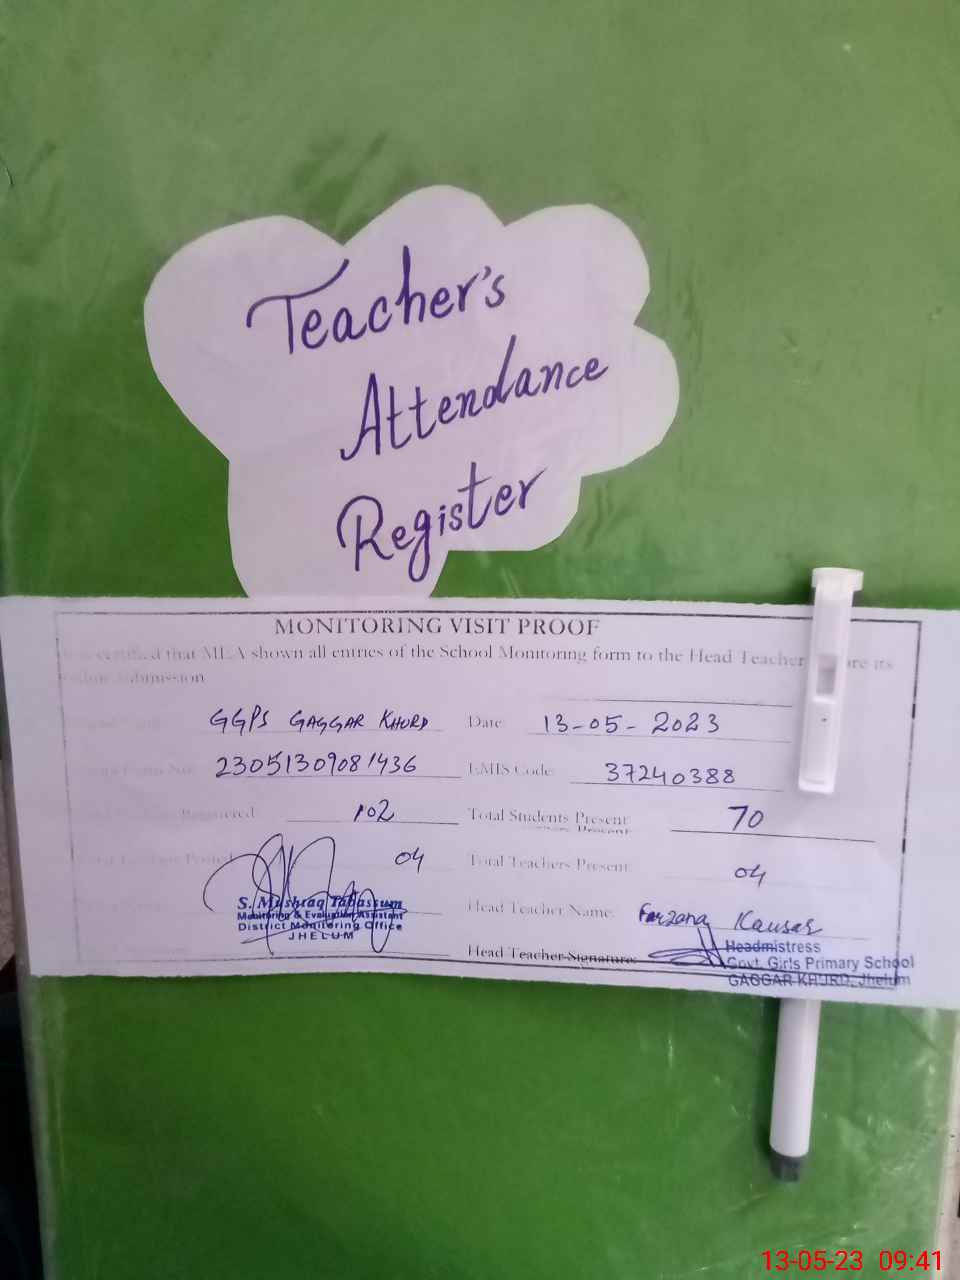 Teacher's
Attendance
Register
MONITORING VISIT PROOF
certified that MEA shown all entries of the School Monitoring form to the Head Teacher its
submission
GGPS GAGGAR KHURD Date: 13-05-2023
23051309081436 EMIS Code: 37240388
Registered: 102 Total Students Present 70
Posted 04 Total Teachers Present 04
S. Mushtaq Tabassum
Monitoring & Evaluation Assistant
District Monitoring Office
JHELUM
Head Teacher Name: Farzana Kausar
Head Teacher Signature:
Headmistress
Govt. Girls Primary School
GAGGAR KHURD, Jhelum
13-05-23 09:41